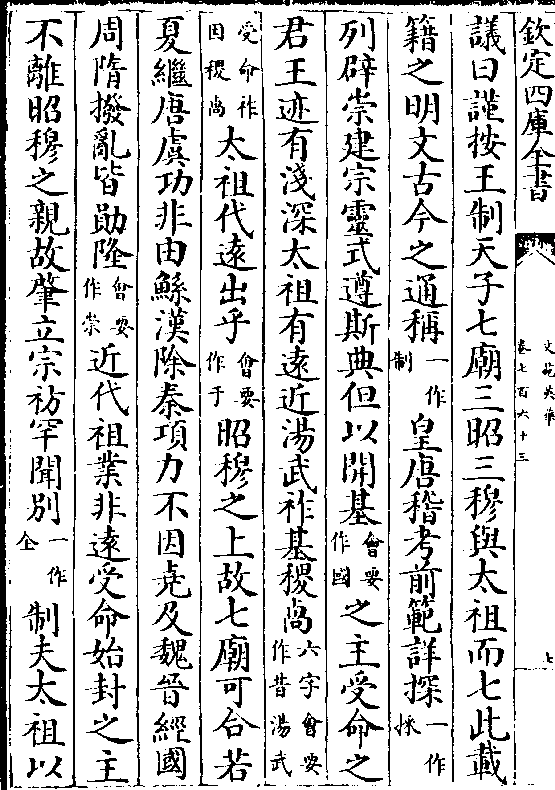 欽定四庫全書
文苑英華
卷七百六十三
七
議曰謹按王制天子七廟三昭三穆與太祖而七此載
籍之明文古今之通稱一作制皇唐稽考前範詳採一作採
列辟崇建宗靈式遵斯典但以開基會要作國之主受命之
君王迹有淺深太祖有遠近湯武祚基稷卨六字會要作昔湯武
受命祚因稷卨太祖代遠出乎會要作于昭穆之上故七廟可合若
夏繼唐虞功非由鯀漢除秦項力不因堯及魏晉經國
周隋撥亂皆勛隆會要作崇近代祖業非遠受命始封之主
不離昭穆之親故肇立宗祊罕聞別一作全制夫太祖以